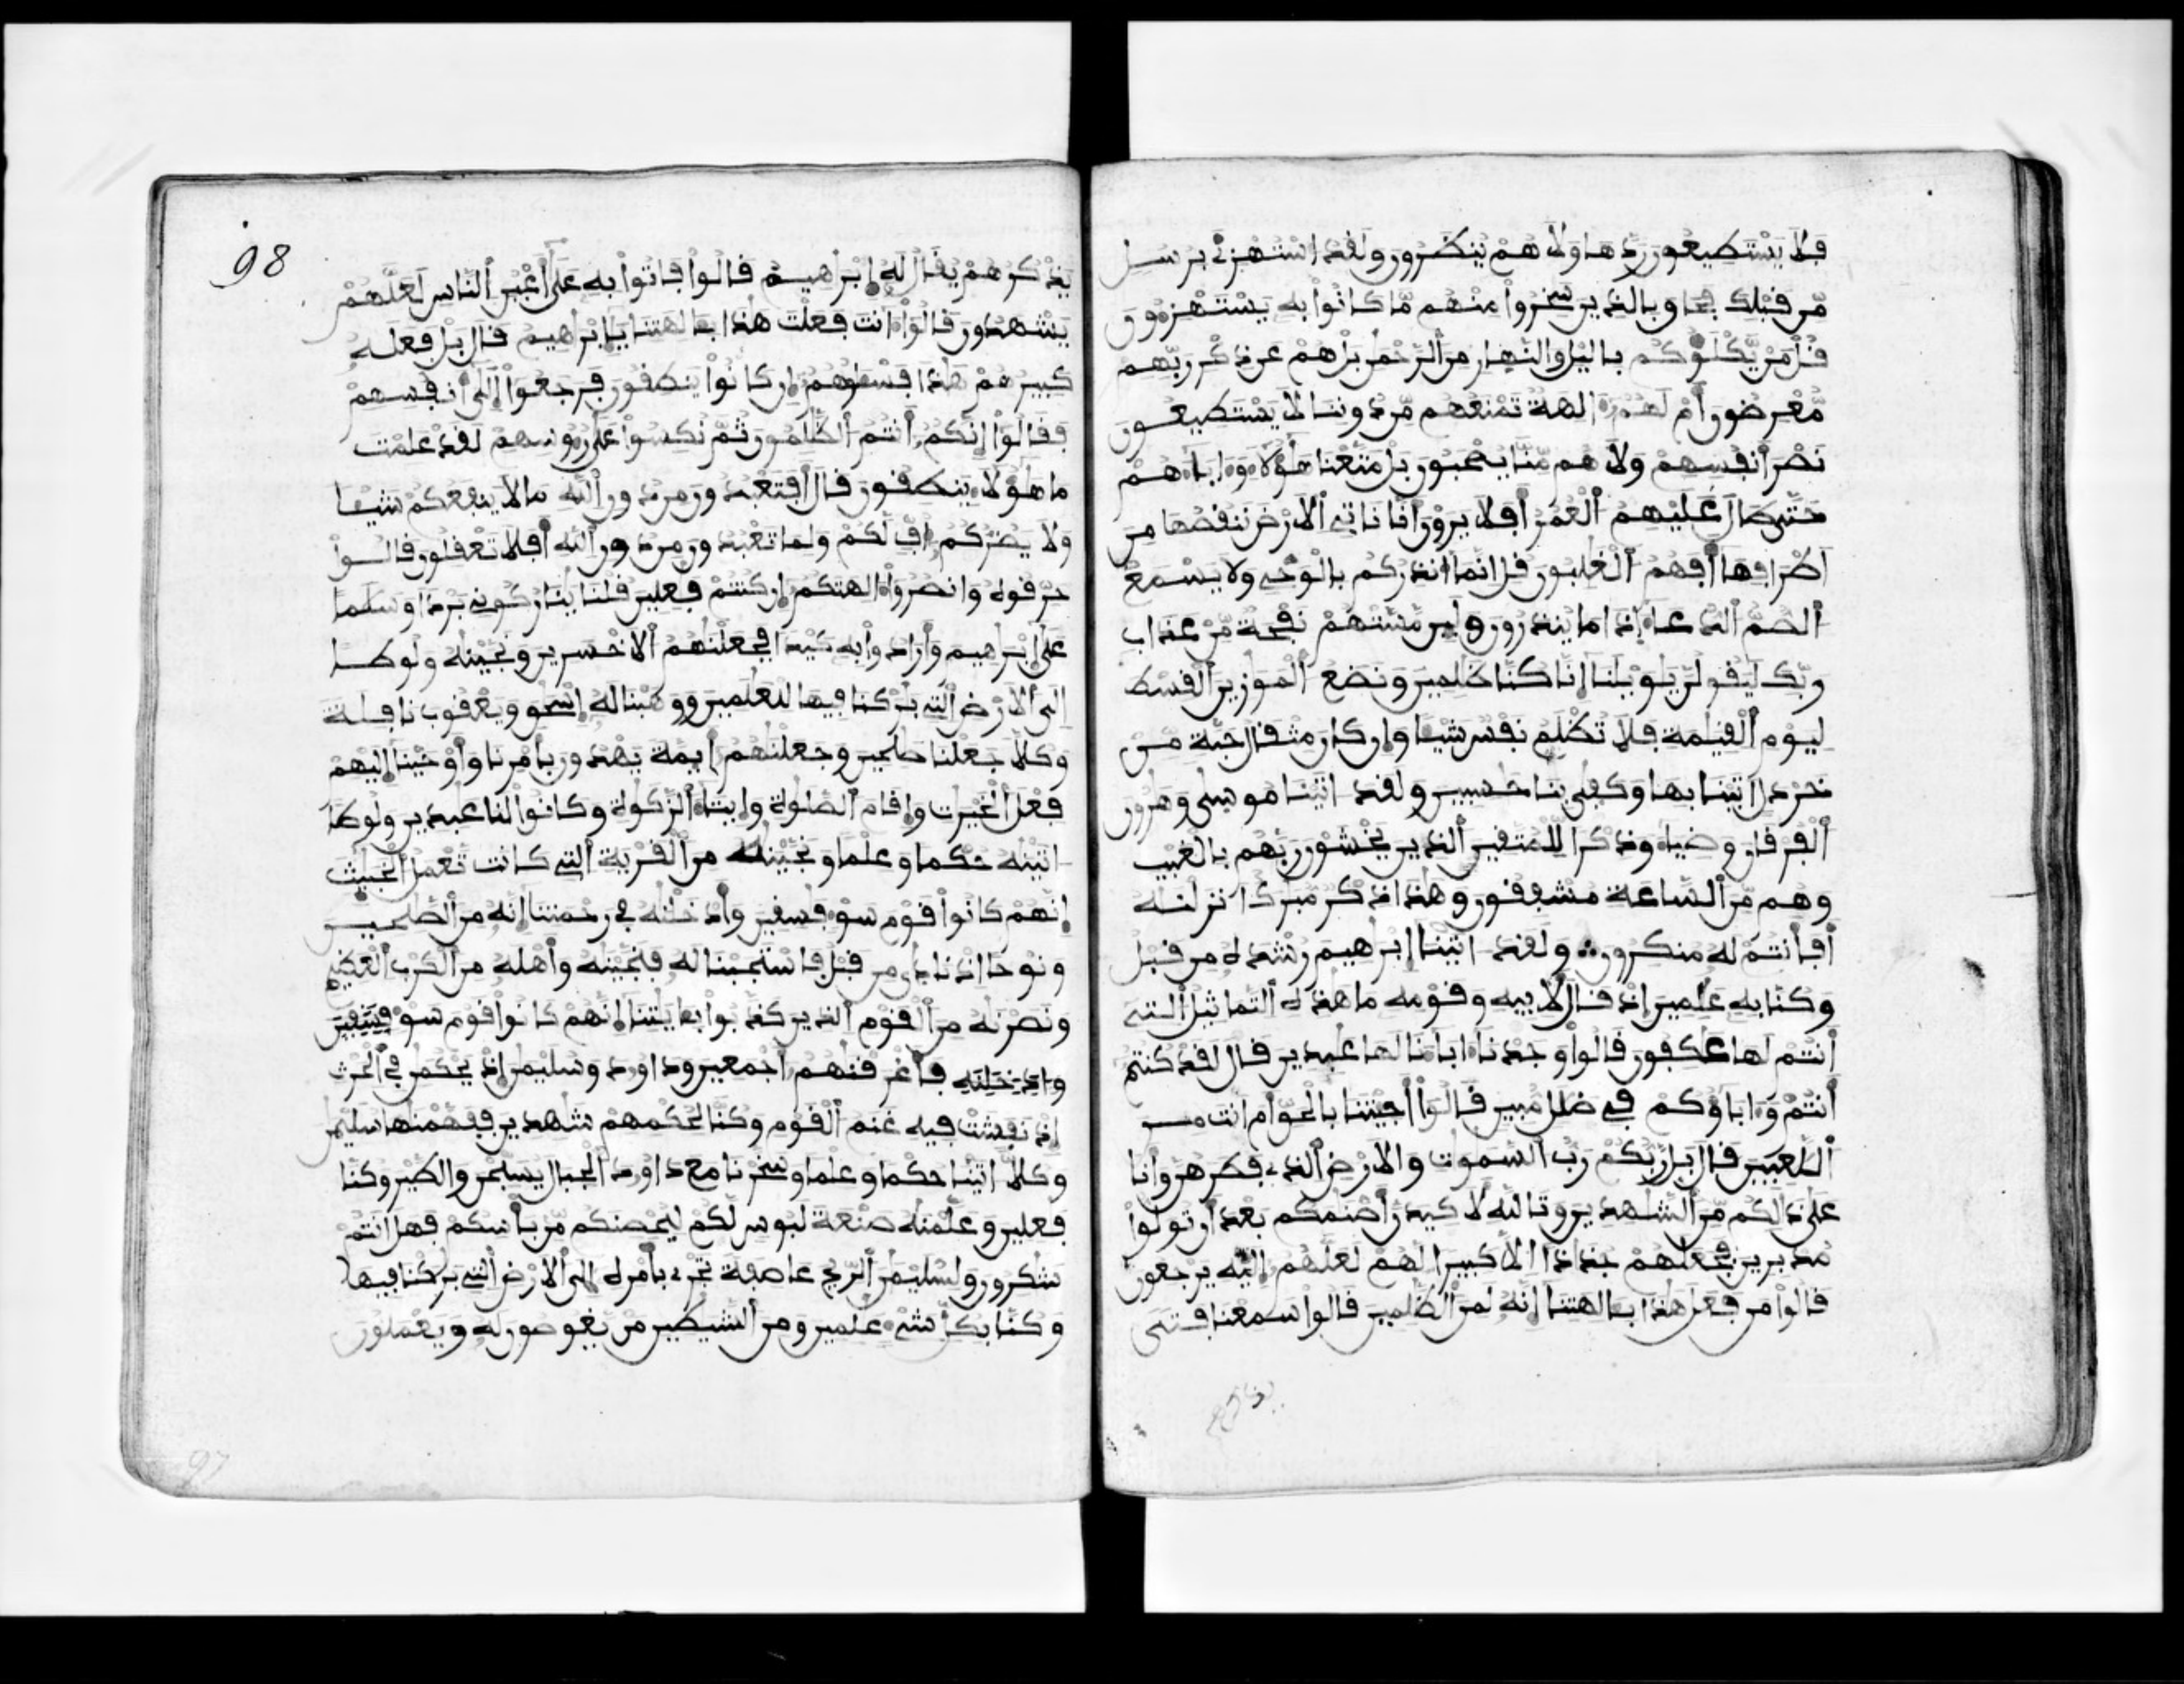 فلا يستطيعون ردها ولا هم ينظرون ولقد استهزئ برسل
من قبلك فحاق بالذين سخروا منهم ما كانوا به يستهزءون
قل من يكلؤكم باليل والنهار من الرحمن بل هم عن ذكر ربهم
معرضون أم لهم ءالهة تمنعهم من دوننا لا يستطيعون
نصر أنفسهم ولا هم منا يصحبون بل متعنا هؤلاء وءاباءهم
حتى طال عليهم العمر أفلا يرون أنا ناتي الارض ننقصها من
أطرافها أفهم الغلبون قل انما أنذركم بالوحي ولا يسمع
الصم الدعاء إذا ما ينذرون ولين مستهم نفحة من عذاب
ربك ليقولن يويلنا إنا كنا ظلمين ونضع الموزين القسط
ليوم القيمة فلا تظلم نفس شيا وان كان مثقال حبة من
خردل اتينا بها وكفى بنا حسبين ولقد اتينا موسى وهرون
الفرقان وضياء وذكرا للمتقين الذين يخشون ربهم بالغيب
وهم من الساعة مشفقون وهذا ذكر مبرك انزلنه
أفأنتم له منكرون ولقد اتينا إبرهيم رشده من قبل
وكنا به علمين إذ قال لابيه وقومه ما هذه التماثيل التي
أنتم لها عكفون قالوا وجدنا ءاباءنا لها عبدين قال لقد كنتم
أنتم وءاباؤكم في ضلل مبين قالوا أجيتنا بالحق أم انت من
اللعبين قال بل ربكم رب السموت والارض الذي فطرهن وانا
على ذالكم من الشهدين وتالله لاكيدن أصنمكم بعد أن تولوا
مدبرين فجعلهم جذاذا الا كبيرا لهم لعلهم إليه يرجعون
قالوا من فعل هذا بءالهتنا إنه لمن الظلمين قالوا سمعنا فتى
يذكرهم
98
يذكرهم يقال له إبراهيم قالوا فاتوا به على أعين الناس لعلهم
يشهدون قالوا ءانت فعلت هذا بءالهتنا يإبراهيم قال بل فعله
كبيرهم هذا فسئلوهم إن كانوا ينطقون فرجعوا إلى أنفسهم
فقالوا إنكم أنتم الظلمون ثم نكسوا على رءوسهم لقد علمت
ما هؤلاء ينطقون قال أفتعبدون من دون الله ما لا ينفعكم شيا
ولا يضركم اف لكم ولما تعبدون من دون الله أفلا تعقلون قالوا
حرقوه وانصروا ءالهتكم إن كنتم فعلين قلنا ينار كوني بردا وسلما
على إبرهيم وأرادوا به كيدا فجعلنهم الاخسرين ونجينه ولوطا
إلى الارض التي بركنا فيها للعلمين ووهبنا له إسحق ويعقوب نافلة
وكلا جعلنا صلحين وجعلنهم أيمة يهدون بأمرنا وأوحينا إليهم
فعل الخيرت وإقام الصلوة وإيتاء الزكوة وكانوا لنا عبدين ولوطا
اتينه حكما وعلما ونجينه من القرية التي كانت تعمل الخبيث
إنهم كانوا قوم سوء فسقين وأدخلنه في رحمتنا إنه من الصلحين
ونوحا اذ نادى من قبل فاستجبنا له فنجينه وأهله من الكرب العظيم
ونصرنه من القوم الذين كذبوا بءايتنا إنهم كانوا قوم سوء فسقين
وادخلنه فأغرقنهم أجمعين وداود وسليمن إذ يحكمن في الحرث
إذ نفشت فيه غنم القوم وكنا لحكمهم شهدين ففهمنها سليمن
وكلا اتينا حكما وعلما وسخرنا مع داود الجبال يسبحن والطير وكنا
فعلين وعلمنه صنعة لبوس لكم ليحصنكم من بأسكم فهل انتم
شكرون ولسليمن الريح عاصفة تجري بأمره إلى الارض التي بركنا فيها
وكنا بكل شيء علمين ومن الشيطين من يغوصون له ويعملون
97